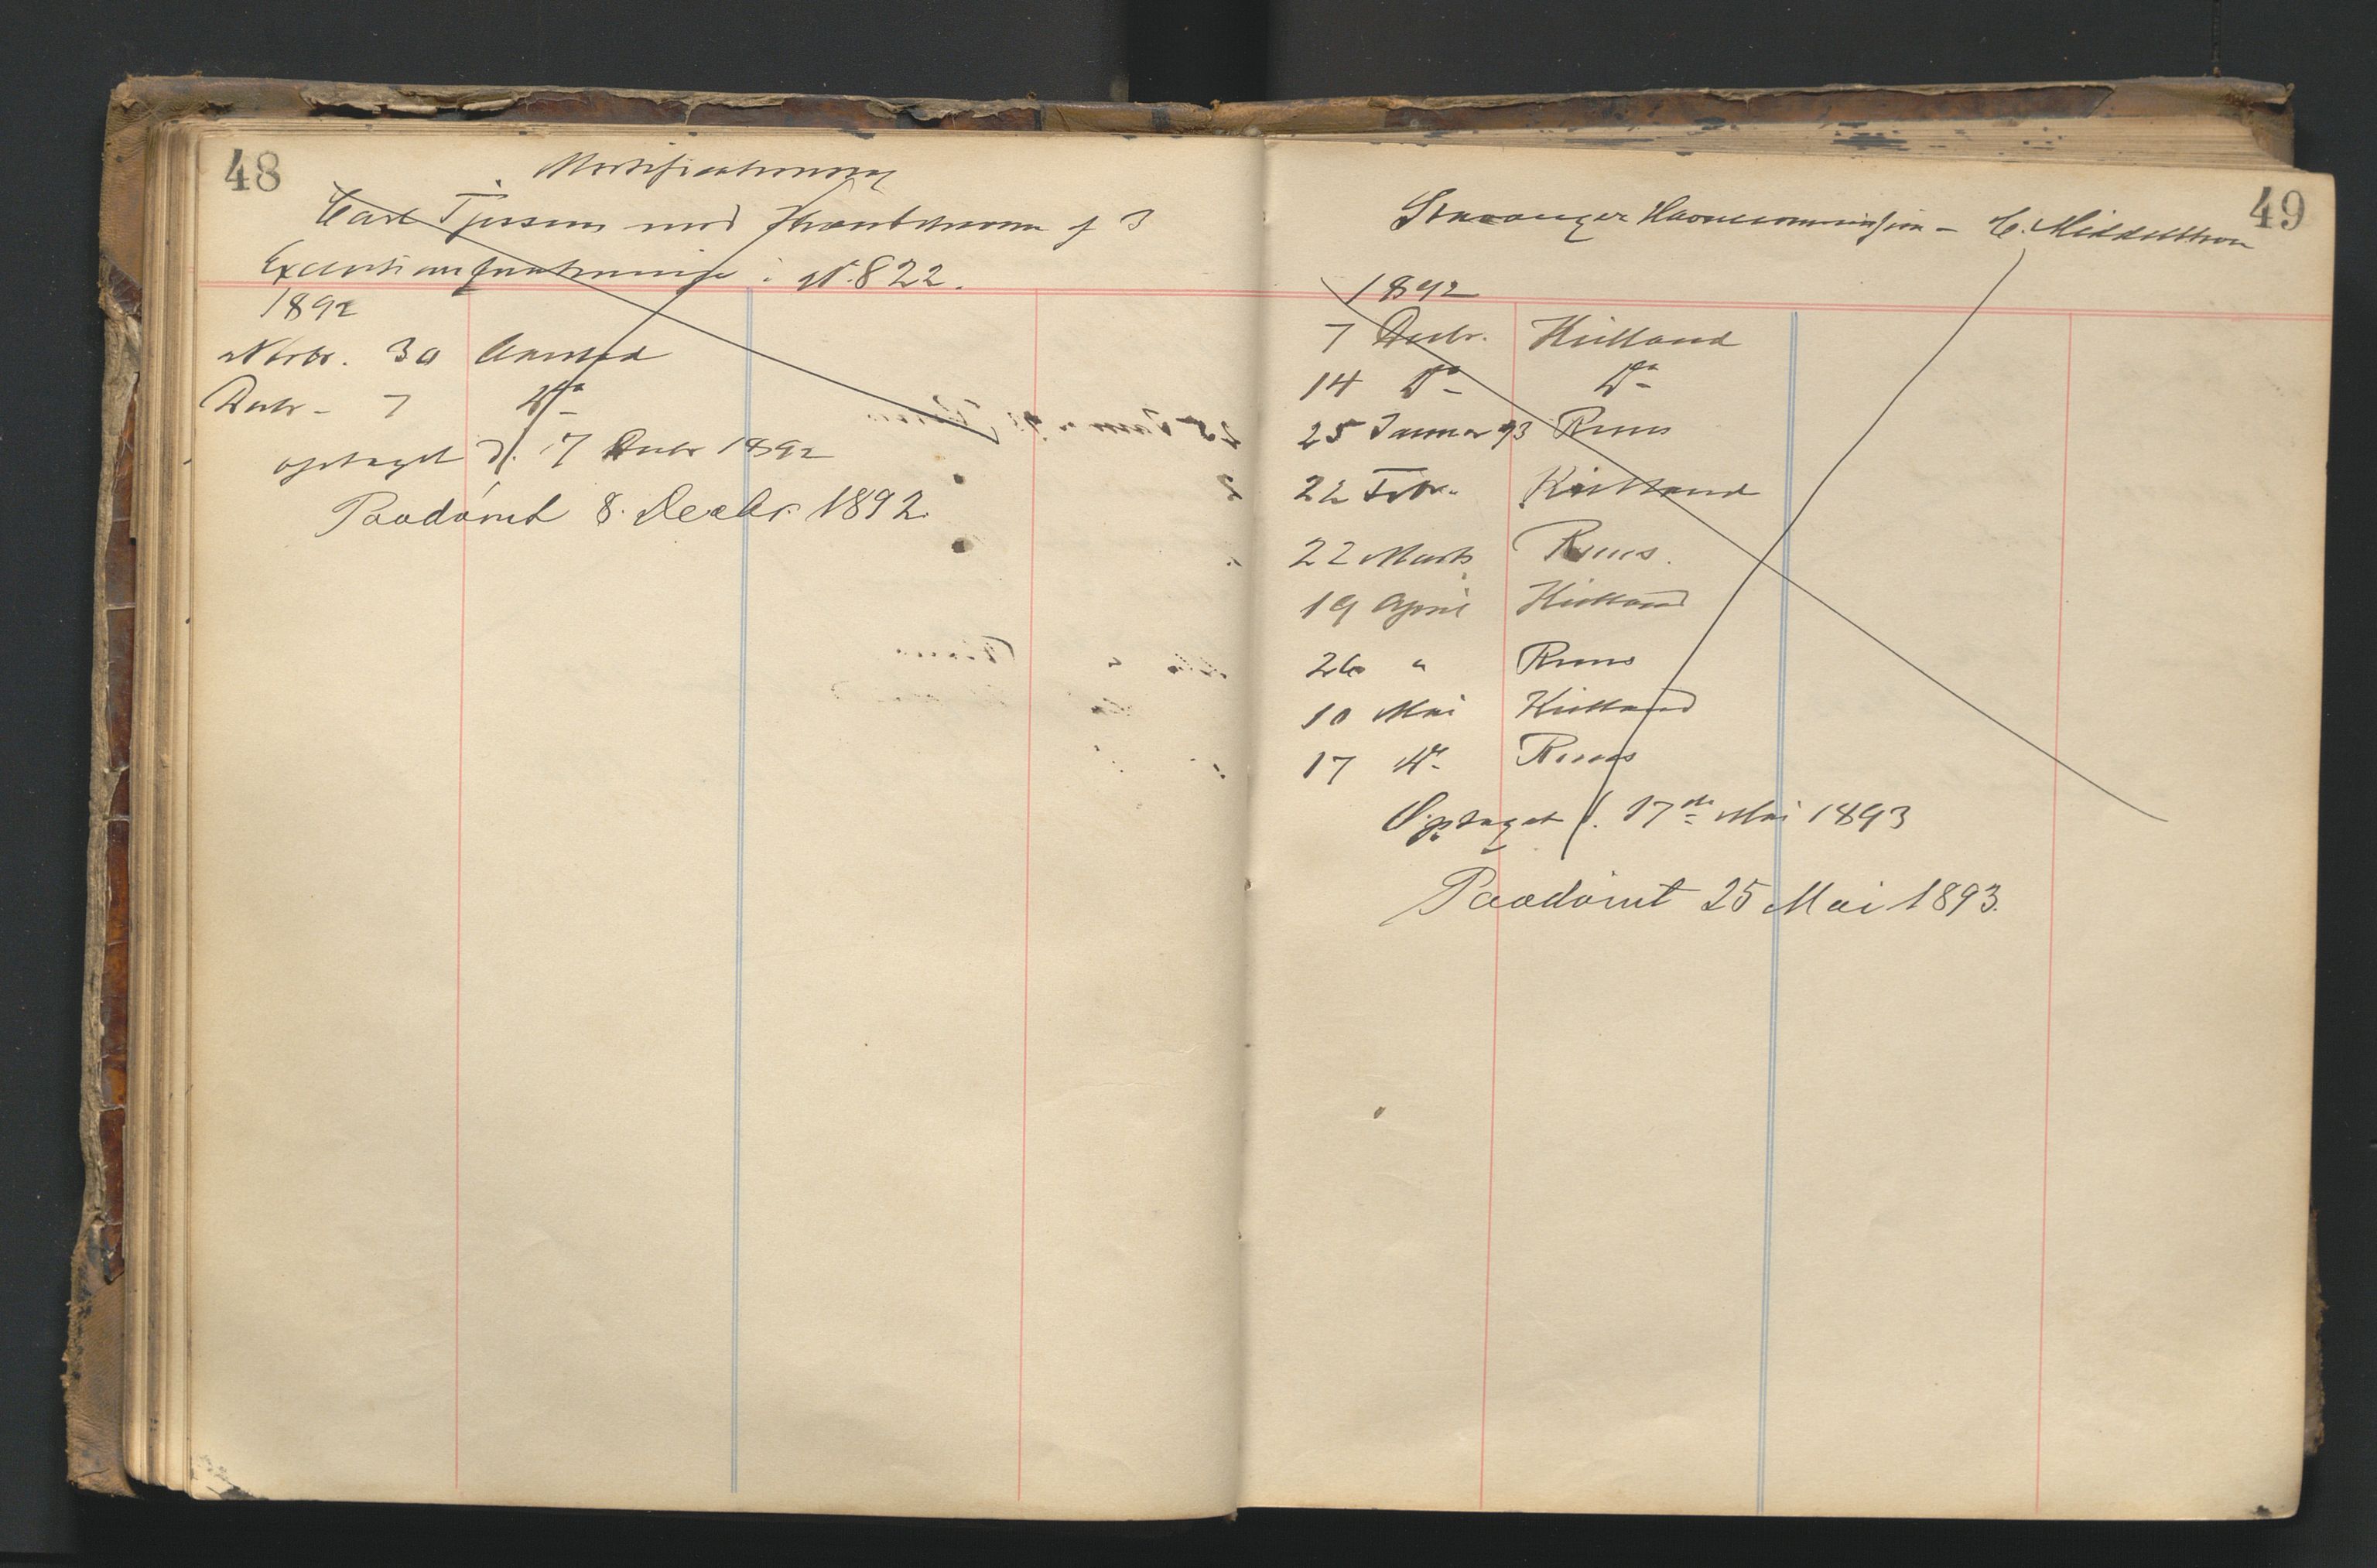 48
Mortificationssag
Carl Tjersem mod Ihændehaveren af 3
i No. 822.
1892
Novbr. 30 Aarstad
Decbr - 7 Do
optaget d. 7 Decbr 1892
Paadømt 8. Decbr. 1892.
49
Stavanger Havnecommission - C. Middelthon
1892
7 Decbr. Kielland
14 Do - Do -
25 Januar 93 Riims
22 Febr. Kielland
22 Marts Riims.
19 April Kielland
26 " Riims
10 Mai Kielland
17 Do - Riims
Optaget d. 17de Mai 1893
Paadømt 25 Mai 1893.